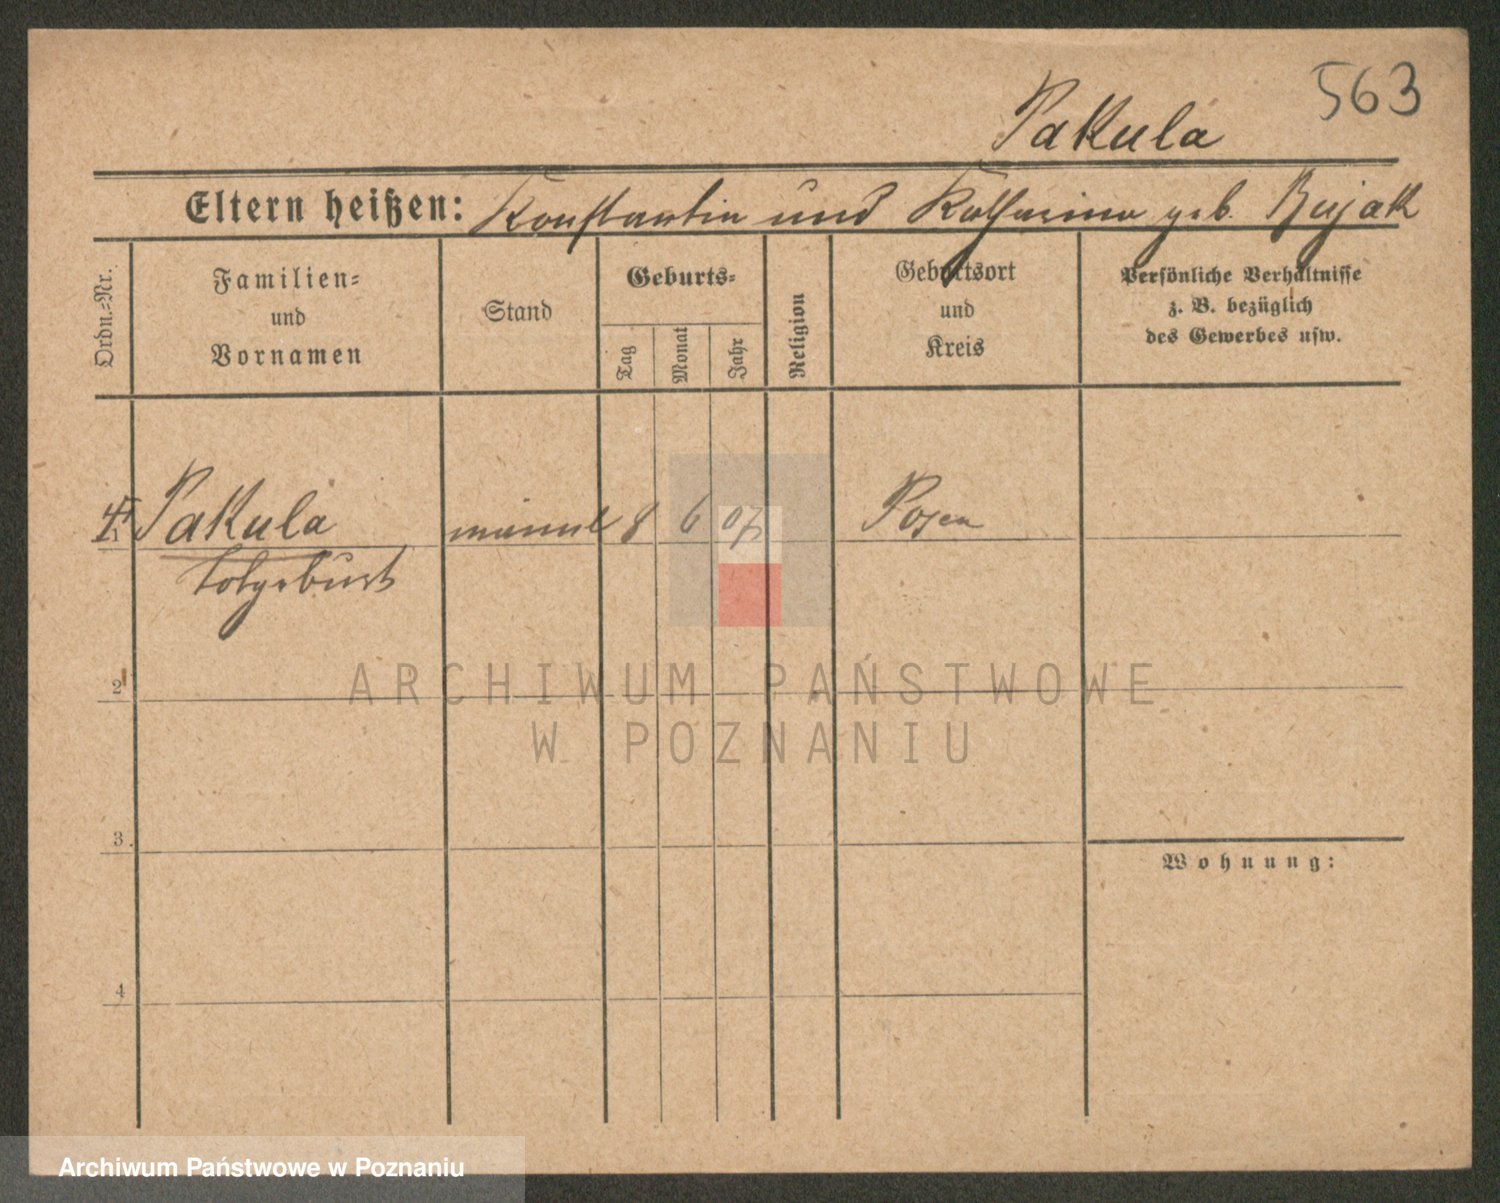 563
Pakula
Eltern heißen: Konstantin und Katharina geb. Bujak
Ordn.-Nr.
Familien-
und
Vornamen
Stand
Geburts-
Tag
Monat
Jahr
Religion
Geburtsort
und
Kreis
Persönliche Verhältnisse
z. B. bezüglich
des Gewerbes usw.
Pakula männl 8 6 07 Posen
Totgeburt
2
3
4
Wohnung:
ARCHIWUM PAŃSTWOWE
W POZNANIU
Archiwum Państwowe w Poznaniu